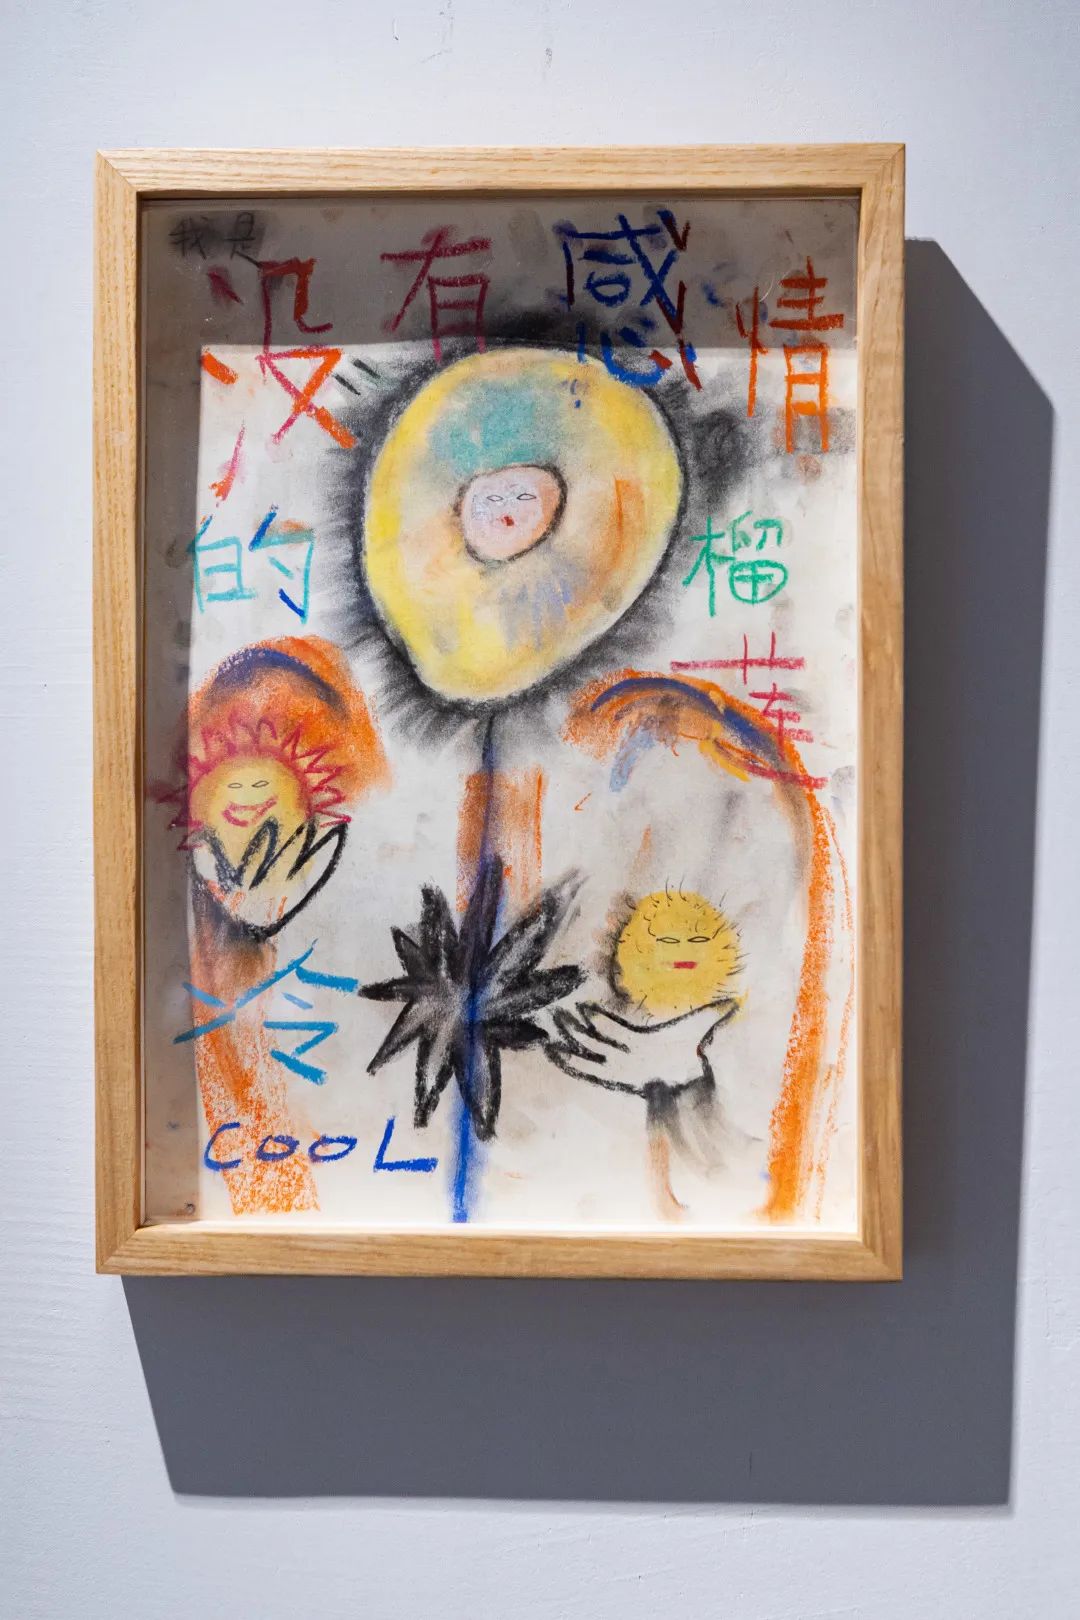 我是
没有感情
的榴
莲
冷
COOL